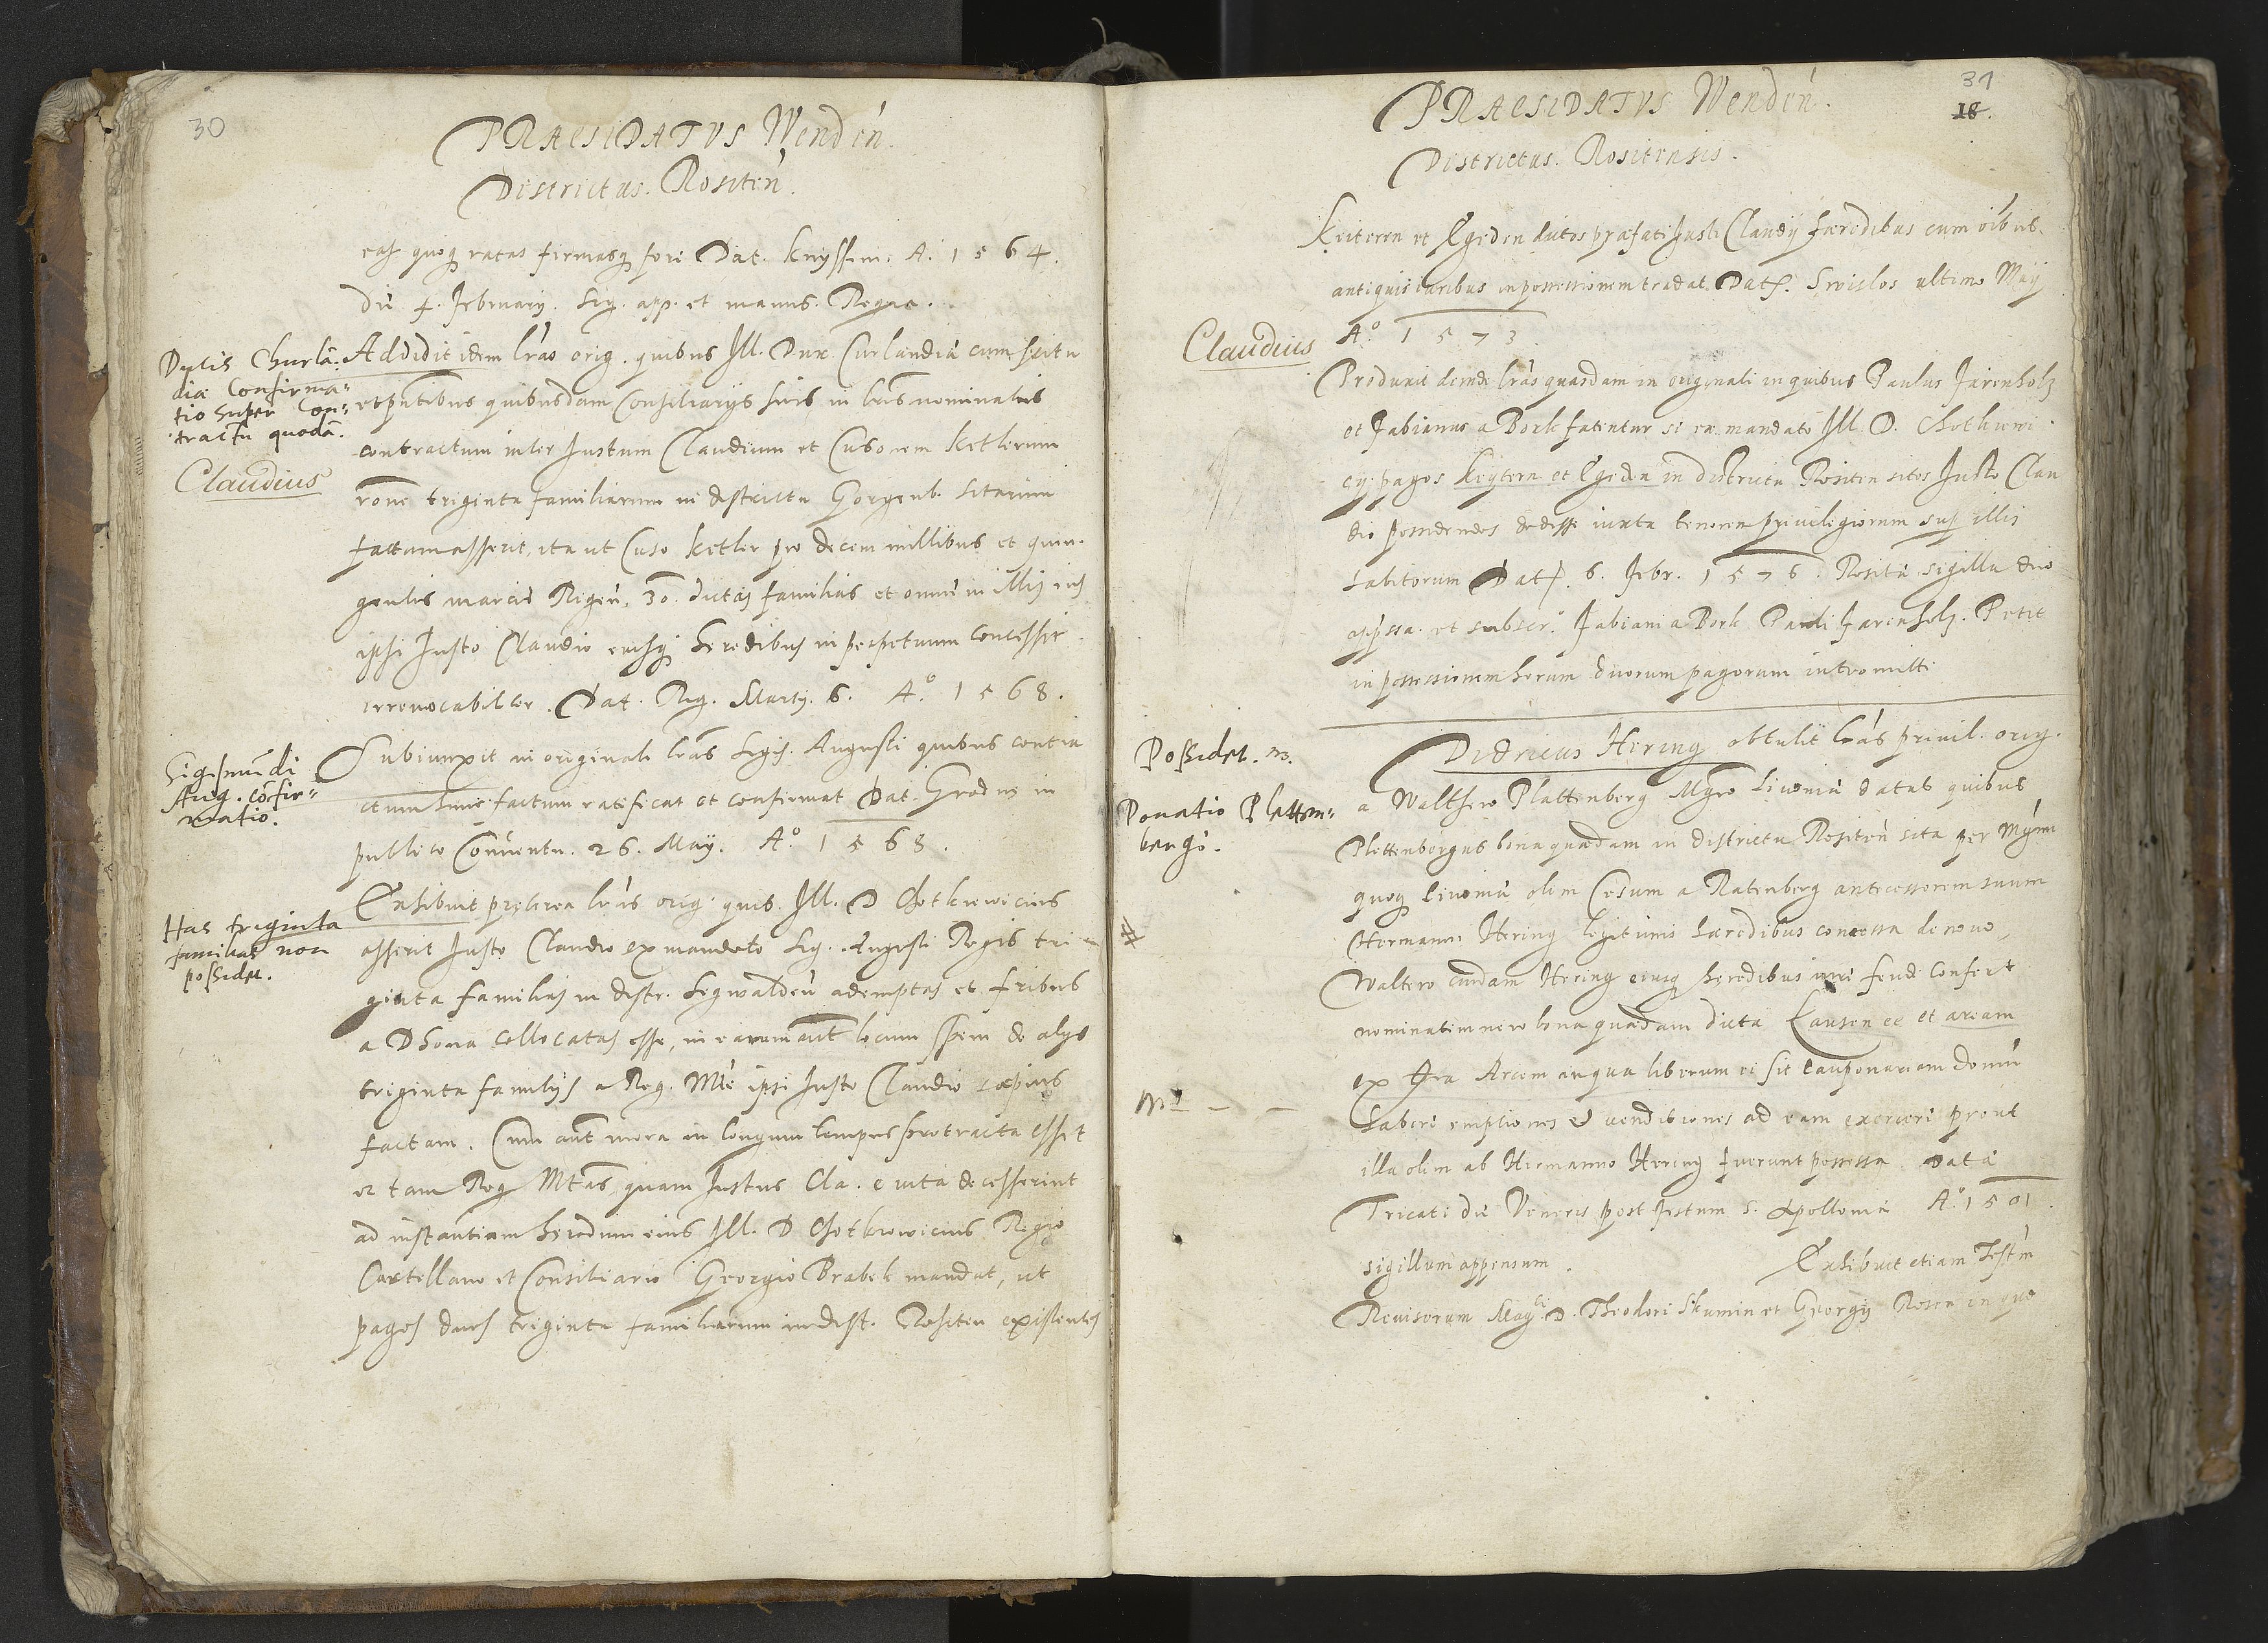 30
PRAESIDATVS Wendeń.
Districtus. Rositeń.
eas quoq ratas firmasq fore Dat. Knyssin. A. 1564.
die 4. February. Sig. app. et manus. Regia.
Ducis Churlā-
diæ Confirma-
tio super Con-
tractu quodā.
Claudius
Addidit idem lras orig. quibus Ill. Dux Curlandiæ cum scitu
et pntibus quibusdam Consiliarijs suis in lris nominatis
contractum inter Justum Claudium et Cusonem Ketlerum
rone triginta familiarum in districtu Gorgenb. sitarum
factum asserit, ita ut Cuso Ketler pro decem millibus et quin-
gentis marcis Rigeń. 30. dictas familias et omne in illis ius
ipsi Justo Claudio eiusq heredibus in perpetuum concessit
irreuocabiliter. Dat. Rig. Martij. 6. A.º 1568.
Sigismūdi
Aug. cōfir-
matio.
Subiunxit in originali lras Sigis. Augusti quibus contra
ctum hunc factum ratificat et confirmat Dat. Grodnæ in
publico Conuentu. 26. May. A.º 1568.
Has triginta
familias non
possidet.
Exhibuit præterea lras orig. quis. Ill. D Chotkiewicius
asserit Justo Claudio ex mandato Sig. Augusti Regis tri-
ginta familias in distr. Segwaldeń ademptas et fribus
a Dhona collocatas esse, in earum aut locum spem de alijs
triginta familijs a Reg. Mte ipsi Justo Claudio sæpius
factam. Cum aut mora in longum tempus protracta esset
et tam Reg Mtas, quam Justus Cla. e vita decesserint
ad instantiam heredum eius Ill. D Chotkiewicius Regio
Castellano et Consiliario Georgio Brabek mandat, ut
pagos duos triginta familiarum in dist. Rositen existentes
31
18.
PRAESIDATVS Wendeń.
Districtus. Rositensis.
Keiteren et Egeden dictos præfati Justi Claudij hæredibus cum oibus
antiquis iuribus in possessionem tradat. Dat. Swislos ultimo Maij
Claudius
A.º 1573.
Produxit deinde lras quasdam in originali in quibus Paulus Farenholz
et Fabianus a Bork fatentur se ex mandato Ill. D. Chotkiewi-
cij. pagos Keytern et Egeden in districtu Rositen sitos Justo Clau
dio possidendos dedisse iuxta tenorem priuilegiorum sup illis
habitorum Dat. 6. Febr. 1576. Rositæ sigilla duo
appssa. et subscr. Fabiani a Bork Pauli Farenholz. Petit
in possessionem horum duorum pagorum intromitti
Possidet. m.
Donatio Plattem-
bergi.
Didricus Hering obtulit lras priuil. orig.
a Walthero Plattenberg Mgro Liuoniæ datas quibus
Plettenborgus bona quædam in districtu Rositeń sita per Mgrum
quoq Liuoniæ olim Cesum a Ratenberg antecessorem suum
Hermanni Hering legitimis hæredibus concessa de nouo,
Waltero cuidam Hering eiusq heredibus iure feudi Confert
nominatim uero bona quædam dicta Lausen ee et aream
ex tra Arcem in qua liberum ei sit cauponariam domū
haberi emptiones & uenditiones ad eam exerceri prout
illa olim ab Hermanno Hering fuerunt possessa Data
Tricati die Veneris post festum S. Apolloniæ A.º 1501.
sigillum appensum. Exhibuit etiam Testm
Reuisorum Mag. D. Theodori Skumin et Georgij Rosen in quo